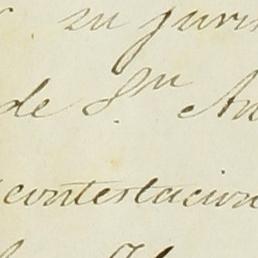 su juris
de Sn. An
contestacion